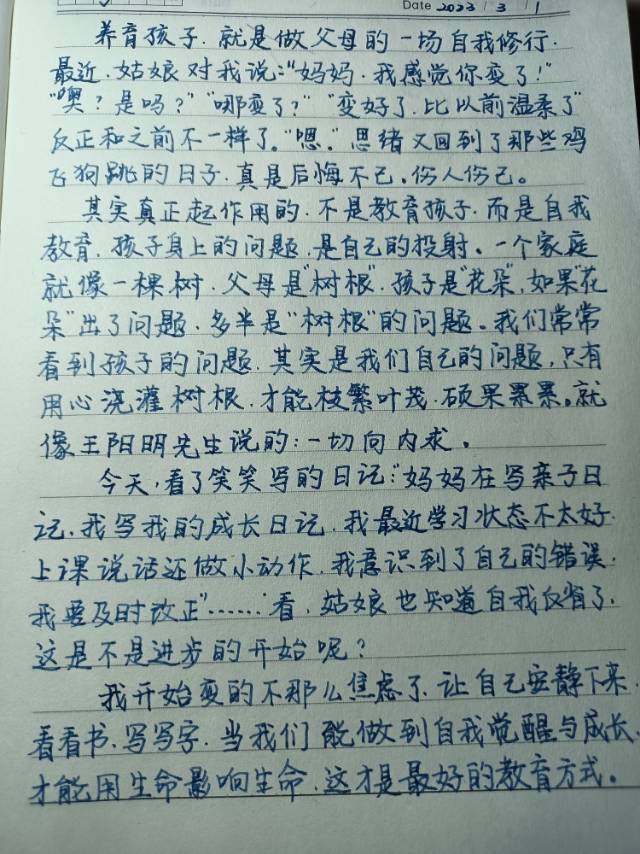 Date 2023 / 3 / 1
养育孩子.就是做父母的一场自我修行.
最近.姑娘对我说:"妈妈.我感觉你变了!"
"噢?是吗?""哪变了?""变好了.比以前温柔了"
反正和之前不一样了。"嗯."思绪又回到了那些鸡
飞狗跳的日子.真是后悔不已。伤人伤己。
其实真正起作用的.不是教育孩子.而是自我
教育.孩子身上的问题.是自己的投射。一个家庭
就像一棵树.父母是"树根".孩子是"花朵",如果"花
朵"出了问题.多半是"树根"的问题。我们常常
看到孩子的问题.其实是我们自己的问题,只有
用心浇灌树根.才能枝繁叶茂.硕果累累。就
像王阳明先生说的:一切向内求。
今天,看了笑笑写的日记:"妈妈在写亲子日
记.我写我的成长日记.我最近学习状态不太好.
上课说话还做小动作.我意识到了自己的错误.
我要及时改正"……看.姑娘也知道自我反省了.
这是不是进步的开始呢?
我开始变的不那么焦虑了.让自己安静下来.
看看书.写写字.当我们能做到自我觉醒与成长.
才能用生命影响生命.这才是最好的教育方式。